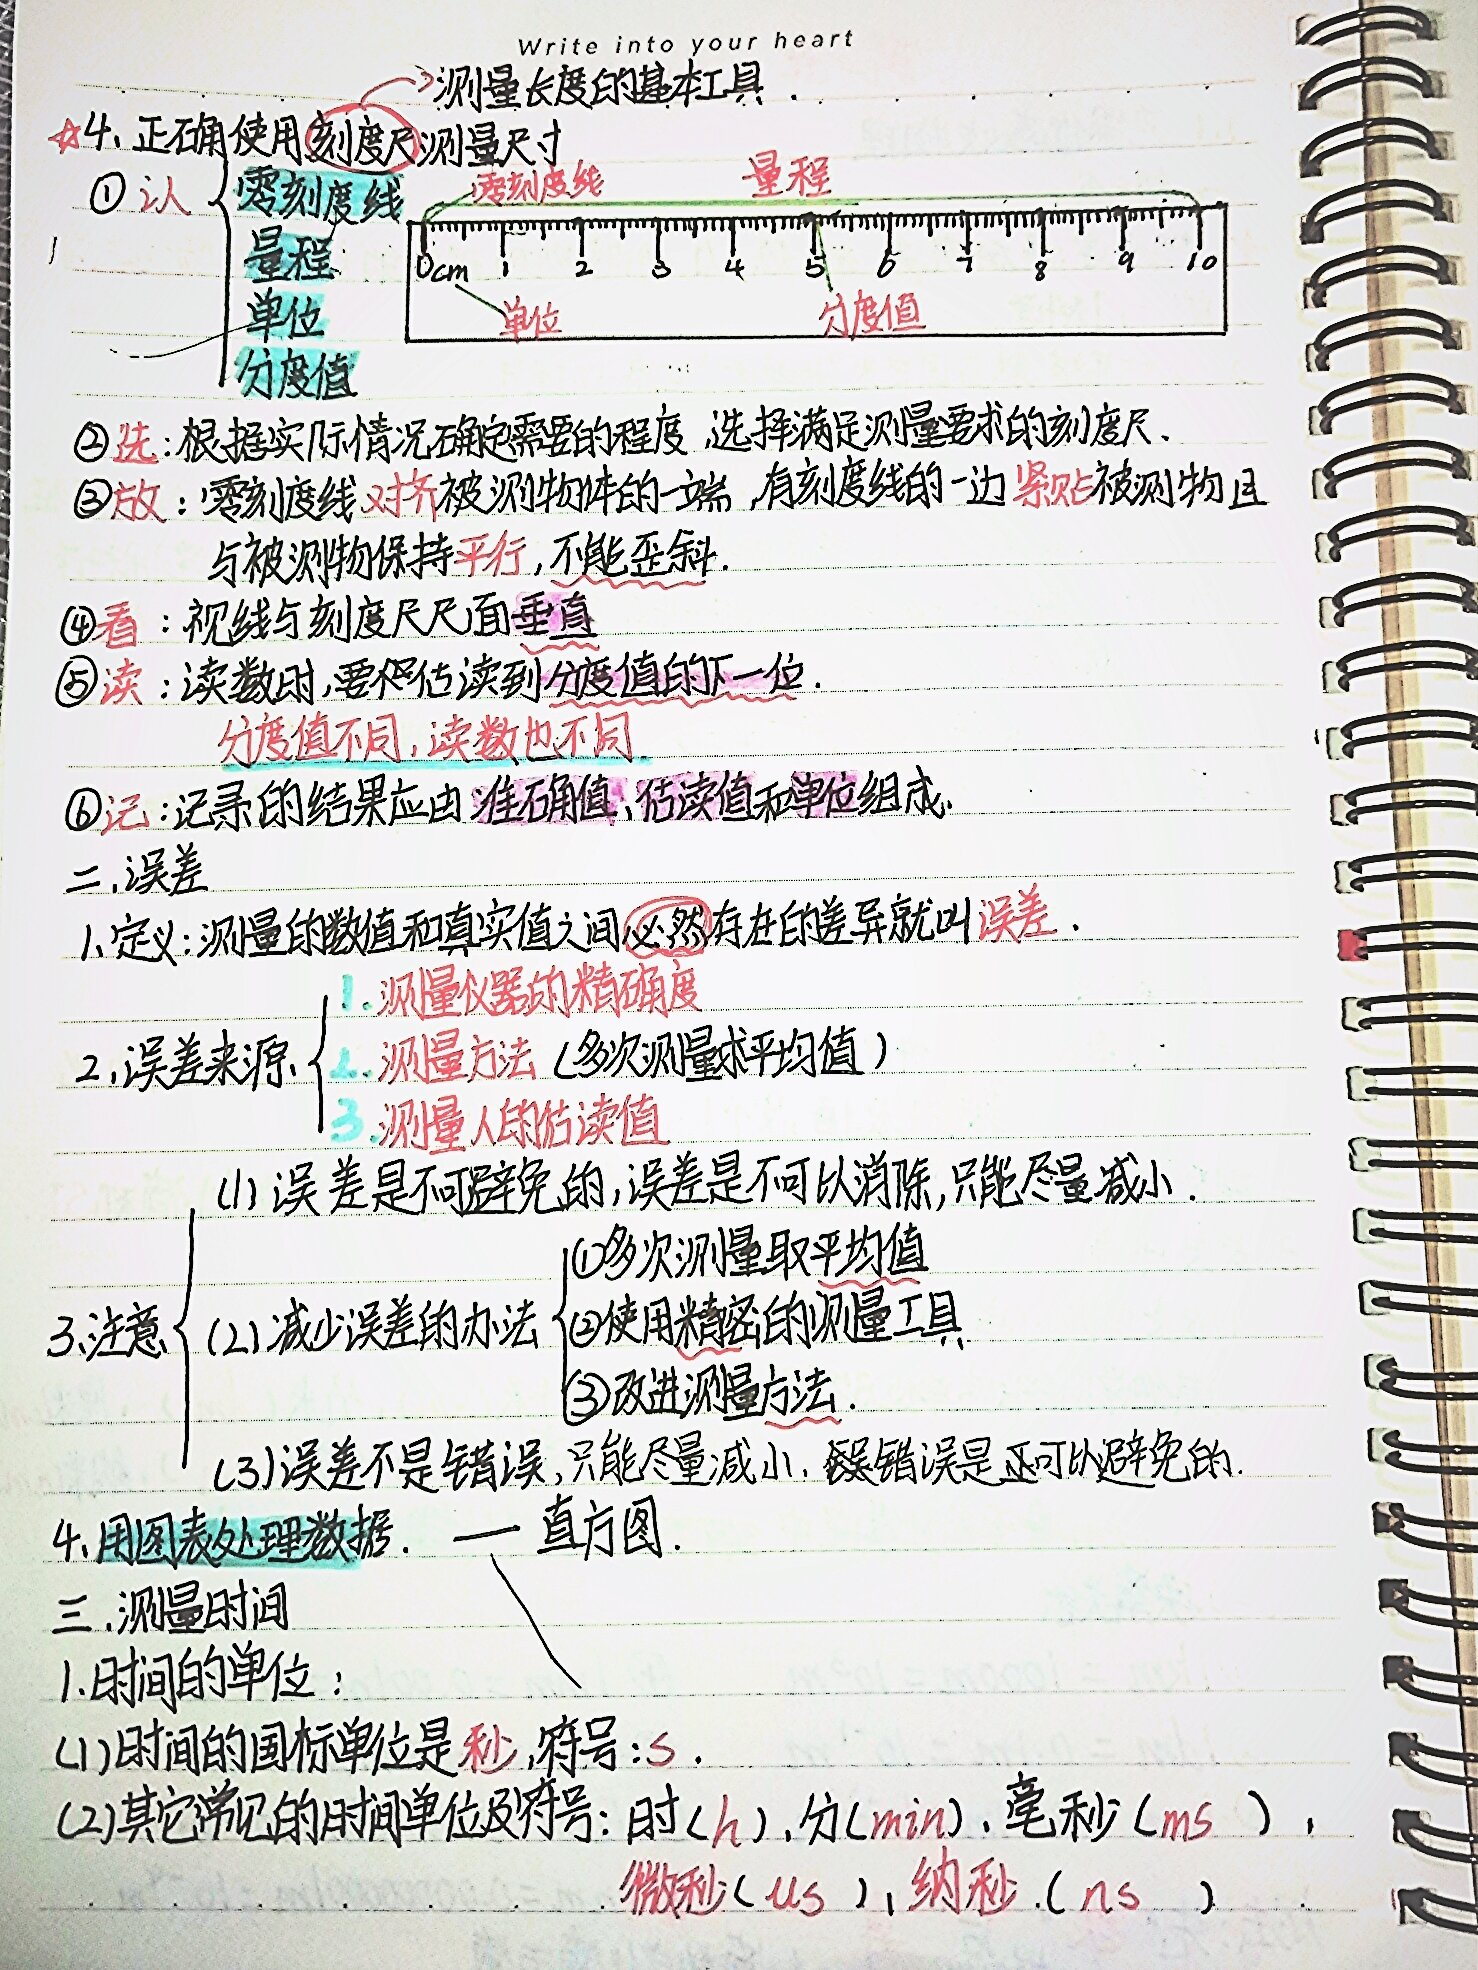 Write into your heart
测量长度的基本工具.
☆4、正确使用刻度尺测量尺寸
①认
零刻度线
量程
单位
分度值
零刻度线 量程
0cm 1 2 3 4 5 6 7 8 9 10
单位 分度值
②选:根据实际情况确定需要的程度,选择满足测量要求的刻度尺.
③放:零刻度线对齐被测物体的一端,有刻度线的一边紧贴被测物且
与被测物保持平行,不能歪斜.
④看:视线与刻度尺尺面垂直
⑤读:读数时,要估读到分度值的下一位.
分度值不同,读数也不同
⑥记:记录的结果应由准确值、估读值和单位组成.
二.误差
1、定义:测量的数值和真实值之间必然存在的差异就叫误差.
2、误差来源、
1.测量仪器的精确度
2.测量方法(多次测量求平均值)
3.测量人的估读值
3、注意
(1)误差是不可避免的,误差是不可以消除,只能尽量减小.
(2)减少误差的办法
①多次测量取平均值
②使用精密的测量工具
③改进测量方法.
(3)误差不是错误,只能尽量减小.错误是可以避免的.
4、用图表处理数据. — 直方图.
三.测量时间
1.时间的单位:
(1)时间的国标单位是秒,符号:s.
(2)其它常见的时间单位及符号:时(h)、分(min)、毫秒(ms)、
微秒(us)、纳秒.(ns)